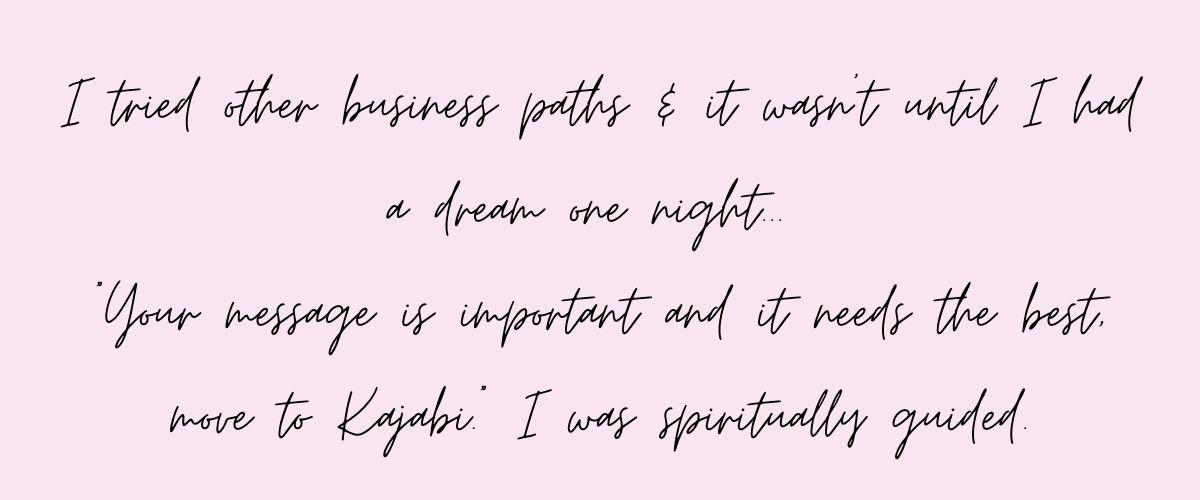 I tried other business paths & it wasn't until I had
a dream one night...
"Your message is important and it needs the best,
move to Kajabi." I was spiritually guided.